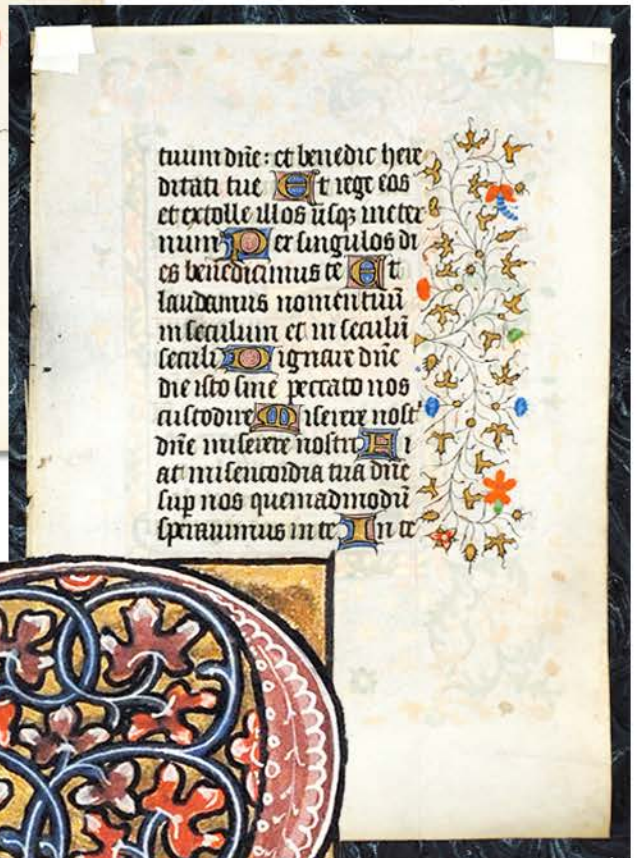 tuum dñe: et benedic here
ditati tue Et rege eos
et extolle illos usq; in eter
num Per singulos di
es benedicimus te Et
laudamus nomen tuū
in seculum et in seculū
seculi Dignare dñe
die isto sine peccato nos
custodire Miserere nost'
dñe miserere nostri Fi
at misericordia tua dñe
sup nos quemadmodū
sperauimus in te In te